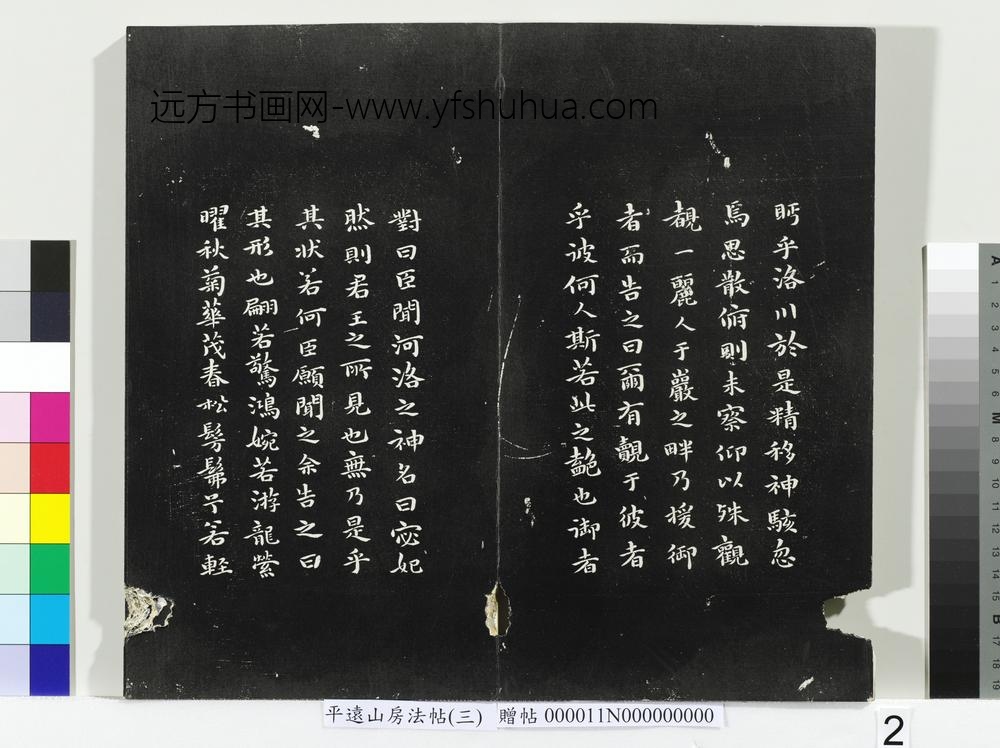 远方书画网-www.yfshuhua.com
眄乎洛川於是精移神駭忽
焉思散俯則未察仰以殊觀
覩一麗人于巖之畔乃援御
者而告之曰爾有覿于彼者
乎彼何人斯若此之艷也御者
對曰臣聞河洛之神名曰宓妃
然則君王之所見也無乃是乎
其狀若何臣願聞之余告之曰
其形也翩若驚鴻婉若游龍榮
曜秋菊華茂春松髣髴兮若輕
平遠山房法帖(三) 贈帖 000011N000000000
2
A 1 2 3 4 5 6 M 8 9 10 11 12 13 14 15 B 17 18 19